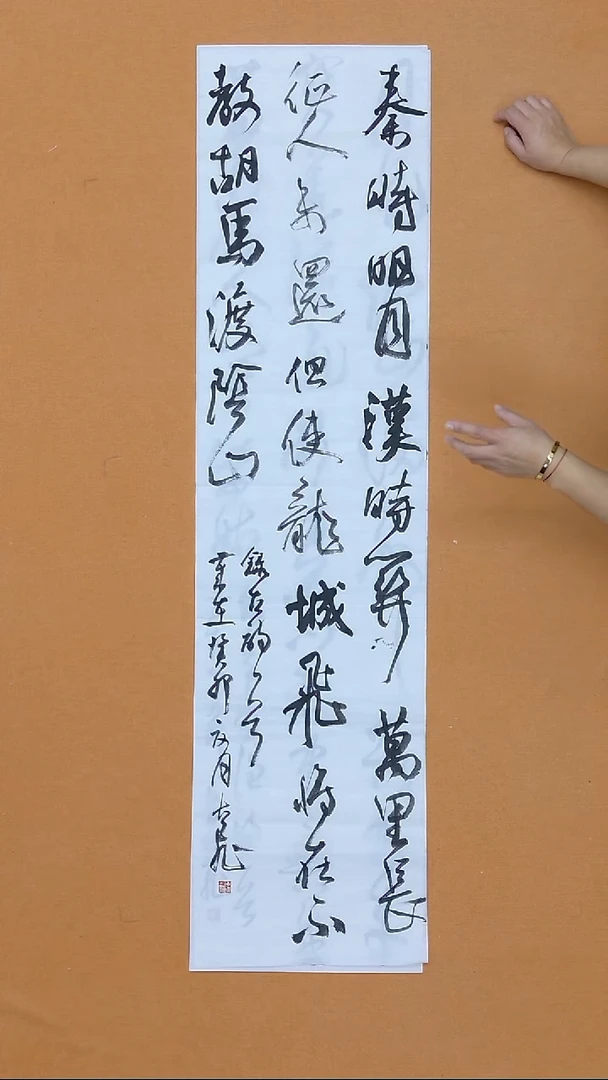 秦時明月漢時關萬里長
征人未還但使龍城飛將在不
教胡馬渡陰山
錄古
癸卯 月